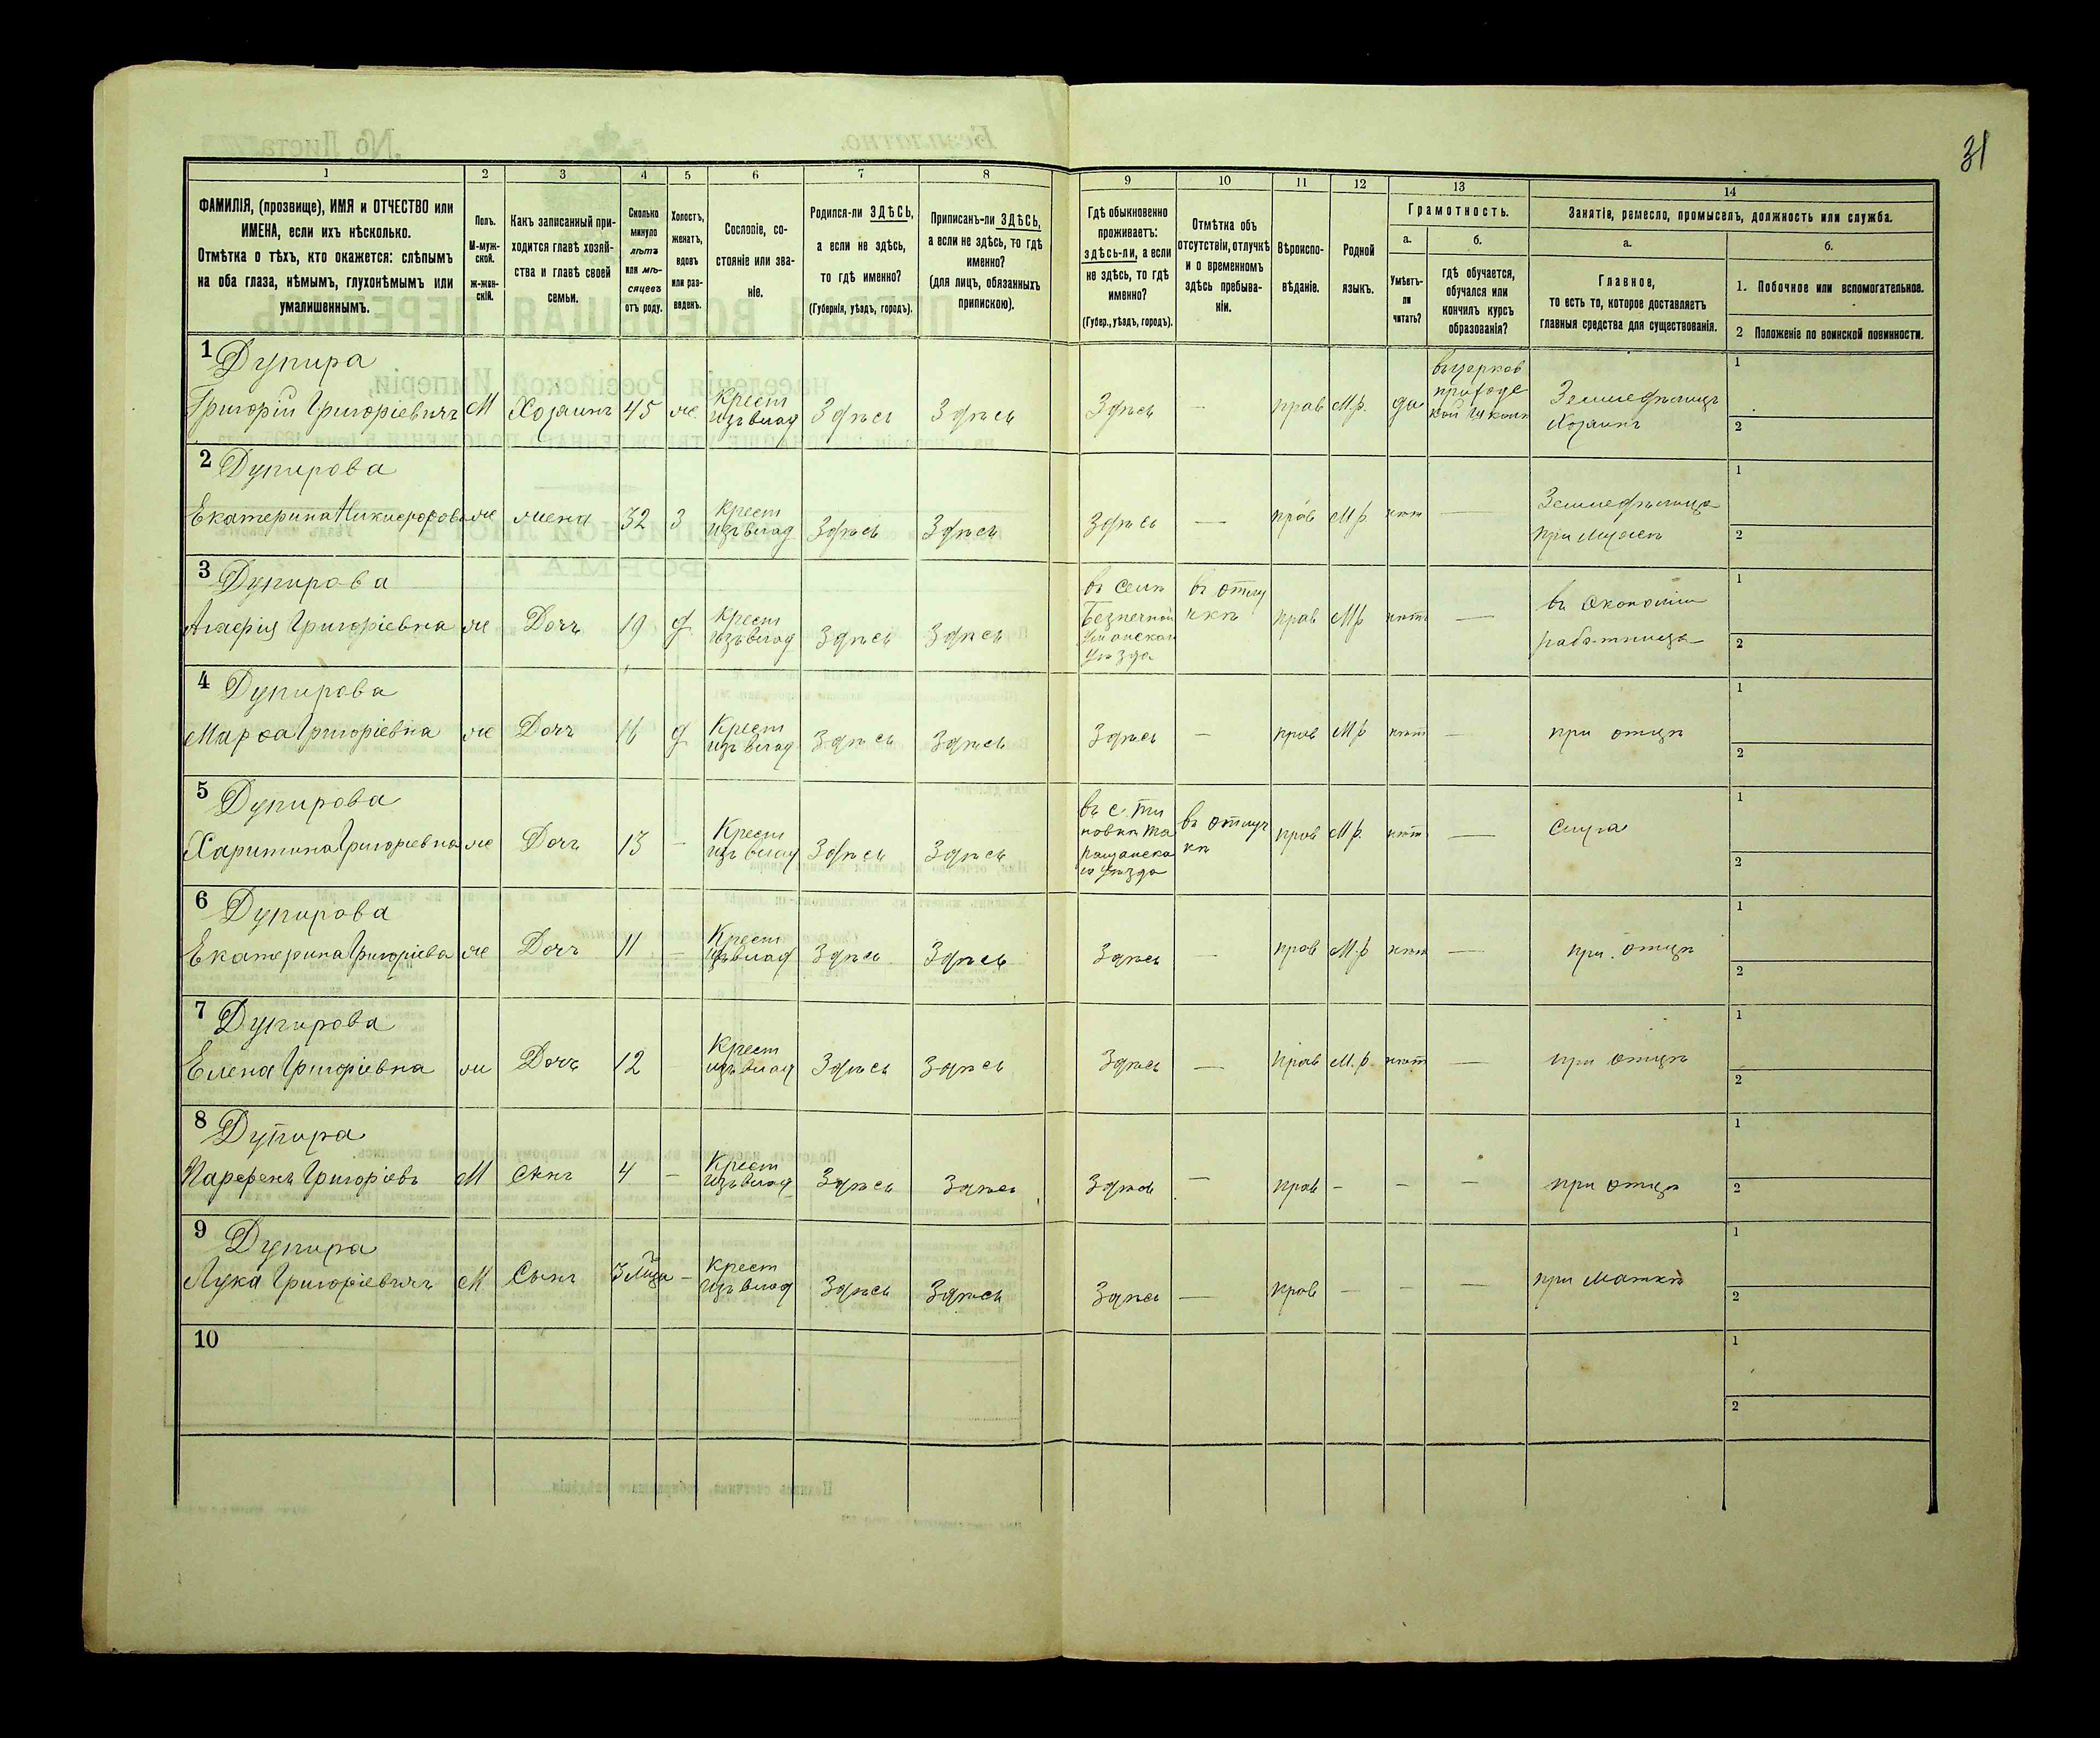 31
1 2 3 4 5 6 7 8 9 10 11 12 13 14
ФАМИЛІЯ, (прозвище), ИМЯ и ОТЧЕСТВО или
ИМЕНА, если ихъ нѣсколько.
Отмѣтка о тѣхъ, кто окажется: слѣпымъ
на оба глаза, нѣмымъ, глухонѣмымъ или
умалишеннымъ.
Полъ.
М-муж-
ской.
ж-жен-
скій.
Какъ записанный при-
ходится главѣ хозяй-
ства и главѣ своей
семьи.
Сколько
минуло
лѣтъ
или мѣ-
сяцевъ
отъ роду.
Холостъ,
женатъ,
вдовъ
или раз-
веденъ.
Сословіе, со-
стояніе или зва-
ніе.
Родился-ли ЗДѢСЬ,
а если не здѣсь,
то гдѣ именно?
(Губернія, уѣздъ, городъ).
Приписанъ-ли ЗДѢСЬ,
а если не здѣсь, то гдѣ
именно?
(для лицъ, обязанныхъ
припискою).
Гдѣ обыкновенно
проживаетъ:
здѣсь-ли, а если
не здѣсь, то гдѣ
именно?
(Губер., уѣздъ, городъ).
Отмѣтка объ
отсутствіи, отлучкѣ
и о временномъ
здѣсь пребыва-
ніи.
Вѣроиспо-
вѣданіе.
Родной
языкъ.
Грамотность.
а.
Умѣетъ-
ли
читать?
б.
гдѣ обучается,
обучался или
кончилъ курсъ
образованія?
Занятіе, ремесло, промыселъ, должность или служба.
а.
Главное,
то есть то, которое доставляетъ
главныя средства для существованія.
б.
1. Побочное или вспомогательное.
2 Положеніе по воинской повинности.
1 Дупира
Григорій Григоріевичъ М Хозяинъ 45 ж. Крест изъ влад Здѣсь Здѣсь Здѣсь — прав М.р. да 1
въ церков
приходс
кой школѣ
Земледѣлецъ
Хозяинъ 2
2 Дупирова 1
Екатерина Никифоров ж жена 32 З Крест изъ влад Здѣсь Здѣсь Здѣсь — прав М.р нѣт —
Земледѣлица
при мужѣ 2
3 Дупирова 1
Григоріевна ж Дочь 19 д Крест изъ влад Здѣсь Здѣсь
въ селѣ
Безпечной
Уманскаго
уѣзда
въ отлу
чкѣ прав М.р нѣт —
въ экономіи
работница 2
4 Дупирова 1
Марѳа Григоріевна ж Дочь 16 д Крест изъ влад Здѣсь Здѣсь Здѣсь — прав М.р нѣт — при отцѣ 2
5 Дупирова 1
Харитина Григоріевна ж Дочь 13 — Крест изъ влад Здѣсь Здѣсь
въ с. Ти
новкѣ Та
ращанска
го уѣзда
въ отлуч
кѣ прав М.р. нѣт — слуга 2
6 Дупирова 1
Екатерина Григоріева ж Дочь 11 — Крест изъ влад Здѣсь Здѣсь Здѣсь — прав М.р нѣт — при отцѣ 2
7 Дупирова 1
Елена Григоріевна ж Дочь 12 Крест изъ влад Здѣсь Здѣсь Здѣсь — прав М.р. нѣт — при отцѣ 2
8 Дупира 1
Парфенъ Григоріевъ М сынъ 4 — Крест изъ влад Здѣсь Здѣсь Здѣсь — прав — — — при отцѣ 2
9 Дупира 1
Лука Григоріевичъ М Сынъ 3 — Крест изъ влад Здѣсь Здѣсь Здѣсь — прав — — — при маткѣ 2
10 1
2